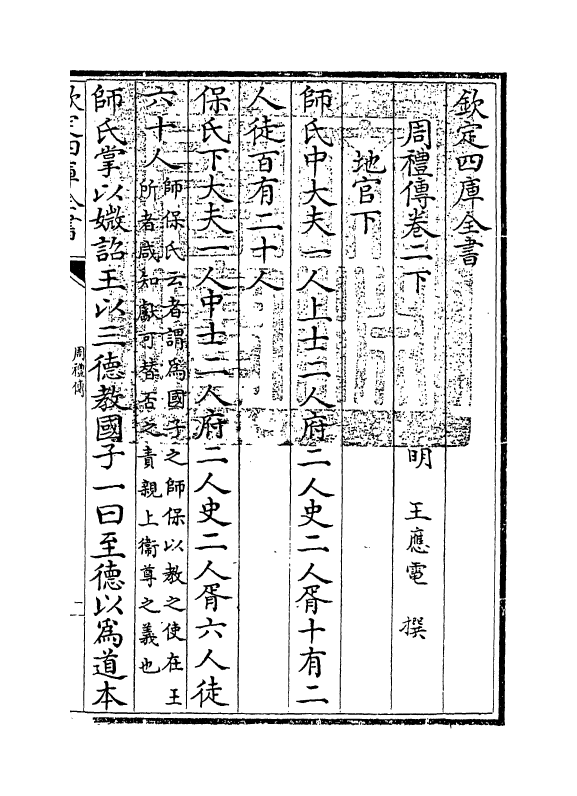 欽定四庫全書
周禮傳卷二下
明 王應電 撰
地官下
師氏中大夫一人上士二人府二人史二人胥十有二
人徒百有二十人
保氏下大夫一人中士二人府二人史二人胥六人徒
六十人
師保氏云者謂爲國子之師保以教之使在王
所者咸知獻可替否之責親上衞尊之義也
師氏掌以媺詔王以三德教國子一曰至德以爲道本
欽定四庫全書
周禮傳